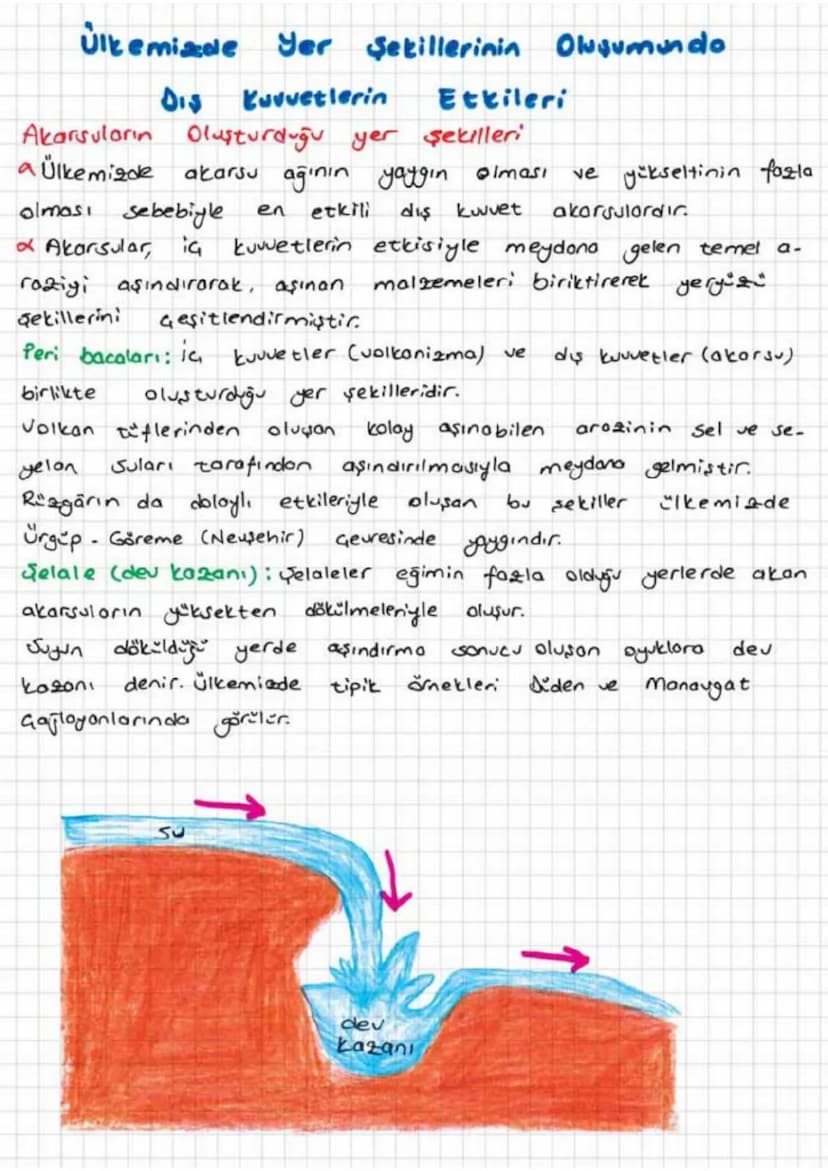 Ülkemizde Yer Şekillerinin Oluşumunda
Dış Kuvvetlerin Etkileri
Akarsuların Oluşturduğu yer şekilleri
α Ülkemizde akarsu ağının yaygın olması ve yükseltinin fazla
olması sebebiyle en etkili dış kuvvet akarsulardır.
α Akarsular, iç kuvvetlerin etkisiyle meydana gelen temel a-
raziyi aşındırarak, aşınan malzemeleri biriktirerek yeryüzü
şekillerini çeşitlendirmiştir.
Peri bacaları: iç kuvvetler (volkanizma) ve dış kuvvetler (akarsu)
birlikte oluşturduğu yer şekilleridir.
Volkan tüflerinden oluşan kolay aşınabilen arazinin sel ve se-
yelan suları tarafından aşındırılmasıyla meydana gelmiştir.
Rüzgârın da dolaylı etkileriyle oluşan bu şekiller ülkemizde
Ürgüp - Göreme (Nevşehir) çevresinde yaygındır.
Şelale (dev kazanı): Şelaleler eğimin fazla olduğu yerlerde akan
akarsuların yüksekten dökülmeleriyle oluşur.
Suyun döküldüğü yerde aşındırma sonucu oluşan oyuklara dev
kazanı denir. Ülkemizde tipik örnekleri Düden ve Manavgat
Çağlayanlarında görülür.
su
dev
kazanı